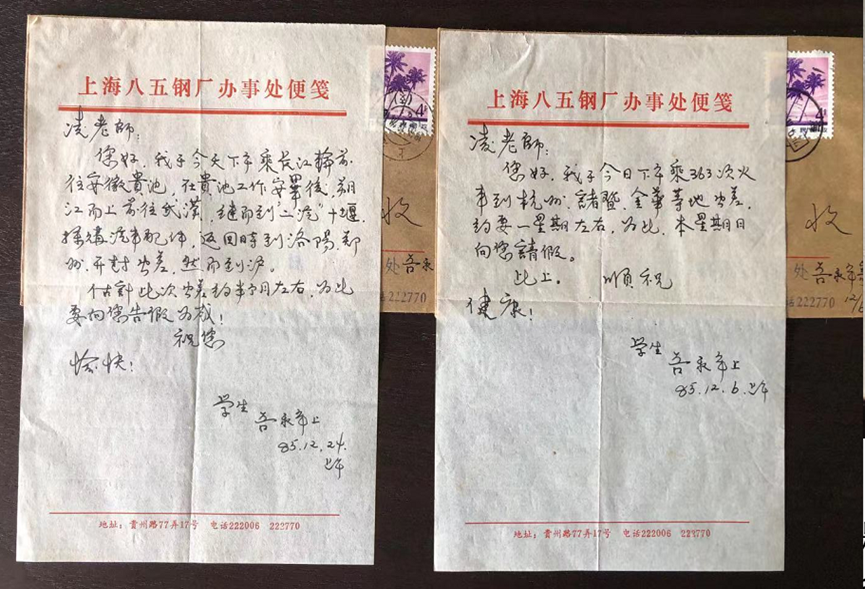 上海八五钢厂办事处便笺
凌老師：
您好，我于今天下午乘长江輪前
往安徽貴池，在貴池工作完畢後，溯
江而上前往武漢，繼而到“二汽”十堰
採購汽車配件，返回時到洛陽，鄭
州，开封出差，然而到沪。
个估計此次出差約半个月左右，为此
要向您告假为哉！
祝您
愉快！
学生
吾永年上
85.12.24.
上午
地址：贵州路77弄17号 电话222006 222770
上海八五钢厂办事处便笺
凌老師：
您好，我于今日下午乘363次火
車到杭州、諸暨、金華等地出差，
約要一星期左右，为此，本星期日
向您請假。
此上。 順祝
健康！
学生
吾永年上
85.12.6.上午
地址：贵州路77弄17号 电话222006 222770
4
收
处 吾永
222770
4
收
处 吾永年
222770
12/6